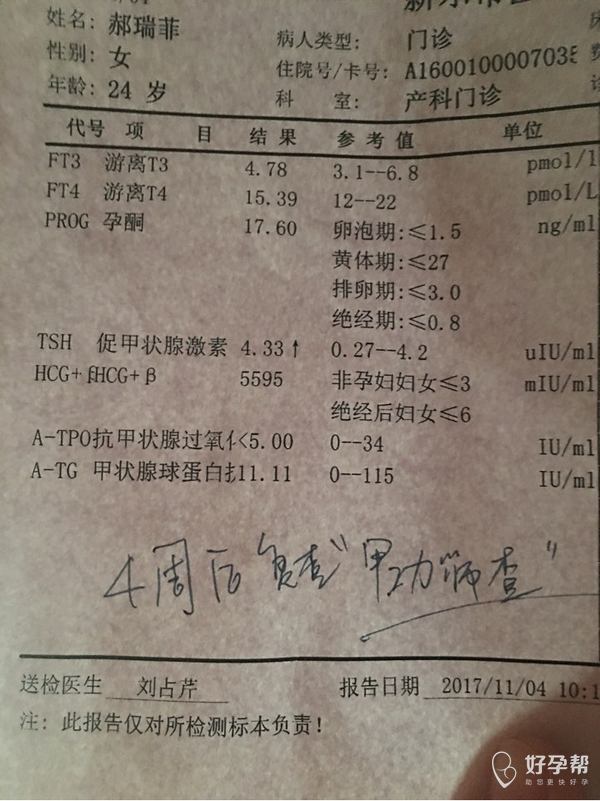 姓名: 郝瑞菲
病人类型: 门诊
性别: 女
住院号/卡号: A1600100007035
年龄: 24 岁
科 室: 产科门诊
代号 项 目 结果 参考值 单位
FT3 游离T3 4.78 3.1--6.8 pmol/l
FT4 游离T4 15.39 12--22 pmol/L
PROG 孕酮 17.60 卵泡期:≤1.5 ng/ml
黄体期:≤27
排卵期:≤3.0
绝经期:≤0.8
TSH 促甲状腺激素 4.33↑ 0.27--4.2 uIU/ml
HCG+βHCG+β 5595 非孕妇妇女≤3 mIU/ml
绝经后妇女≤6
A-TPO抗甲状腺过氧化<5.00 0--34 IU/ml
A-TG 甲状腺球蛋白抗11.11 0--115 IU/ml
4周后复查"甲功筛查"
送检医生 刘占芹 报告日期 2017/11/04 10:1
注: 此报告仅对所检测标本负责!
好孕帮
助您更快好孕